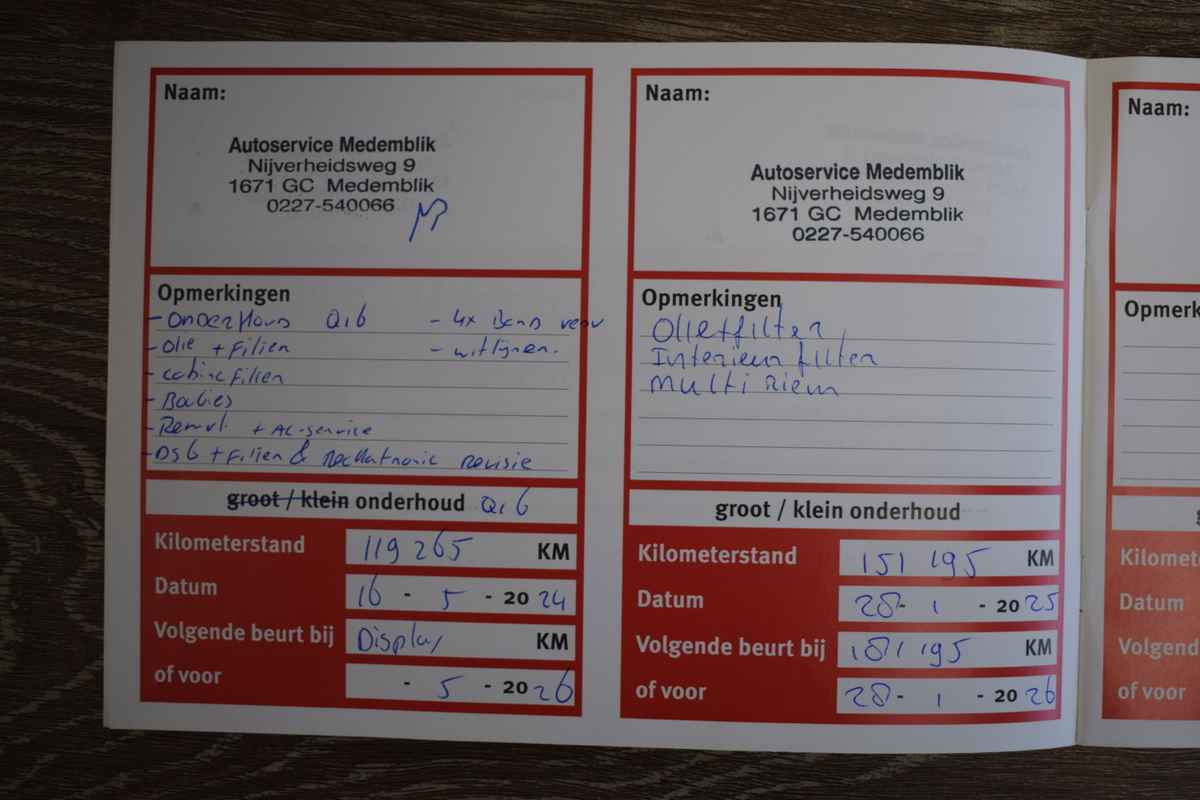 Naam:
Autoservice Medemblik
Nijverheidsweg 9
1671 GC Medemblik
0227-540066
Opmerkingen
- Onderhoud QI6 - 4x Band
- Olie + Filter - uitlijnen.
- cabine filter
- Bougies
- Remvl. + AC-service
- DSG + Filter & mechatronic revisie
groot / klein onderhoud QI6
Kilometerstand 119 265 KM
Datum 16 - 5 - 20 24
Volgende beurt bij Display KM
of voor - 5 - 20 26
Naam:
Autoservice Medemblik
Nijverheidsweg 9
1671 GC Medemblik
0227-540066
Opmerkingen
Olie+filter
Interieur filter
multi riem
groot / klein onderhoud
Kilometerstand 151 195 KM
Datum 28 - 1 - 20 25
Volgende beurt bij 181 195 KM
of voor 28 - 1 - 20 26
Naam:
Opmerk
Kilomete
Datum
Volgend
of voor